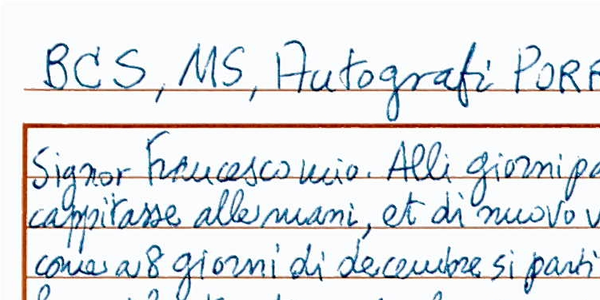 BCS, MS, Autografi PORR
Signor Francesco mio. Alli giorni pa
cappitasse alle mani, et di nuovo v
come a 8 giorni di decembre si parti